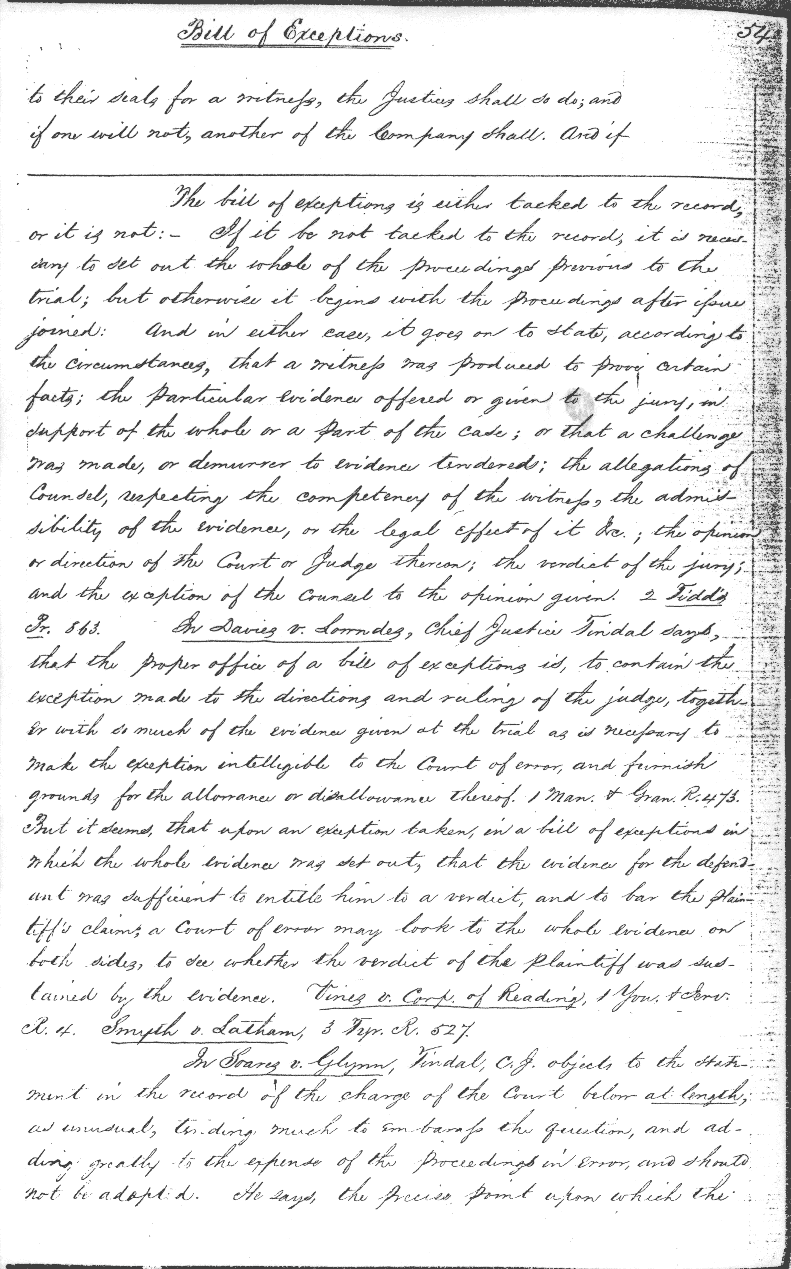 Bill of Exceptions.
54.
to their seals for a witness, the Justices shall so do; and
if one will not, another of the Company shall. And if
The bill of exceptions is either tacked to the record,
or it is not:- If it be not tacked to the record, it is neces-
sary to set out the whole of the proceedings previous to the
trial; but otherwise it begins with the proceedings after issue
joined: And in either case, it goes on to state, according to
the circumstances, that a witness was produced to prove certain
facts; the particular evidence offered or given to the jury, in
support of the whole or a part of the case; or that a challenge
was made, or demurrer to evidence tendered; the allegations of
Counsel, respecting the competency of the witness, the admis-
sibility of the evidence, or the legal effect of it &c.; the opinion
or direction of the Court or Judge thereon; the verdict of the jury;
and the exception of the Counsel to the opinion given. 2 Tidd's
Pr. 863. In Davies v. Lowndes, Chief Justice Tindal says,
that the proper office of a bill of exceptions is, to contain the
exception made to the directions and ruling of the judge, togeth-
er with so much of the evidence given at the trial as is necessary to
make the exception intelligible to the Court of error, and furnish
grounds for the allowance or disallowance thereof. 1 Man. & Gran. R. 473.
But it seems, that upon an exception taken, in a bill of exceptions in
which the whole evidence was set out, that the evidence for the defend-
ant was sufficient to entitle him to a verdict, and to bar the plain-
tiff's claim; a Court of error may look to the whole evidence on
both sides, to see whether the verdict of the plaintiff was sus-
tained by the evidence. Vines v. Corp. of Reading, 1 You. & Jerv.
R. 4. Smyth v. Latham, 3 Tyr. R. 527.
In Soares v. Glynn, Tindal, C.J. objects to the state-
ment in the record of the charge of the Court below at length,
as unusual, tending much to embarass the question, and ad-
ding greatly to the expense of the proceedings in error, and should
not be adopted. He says, the precise point upon which the